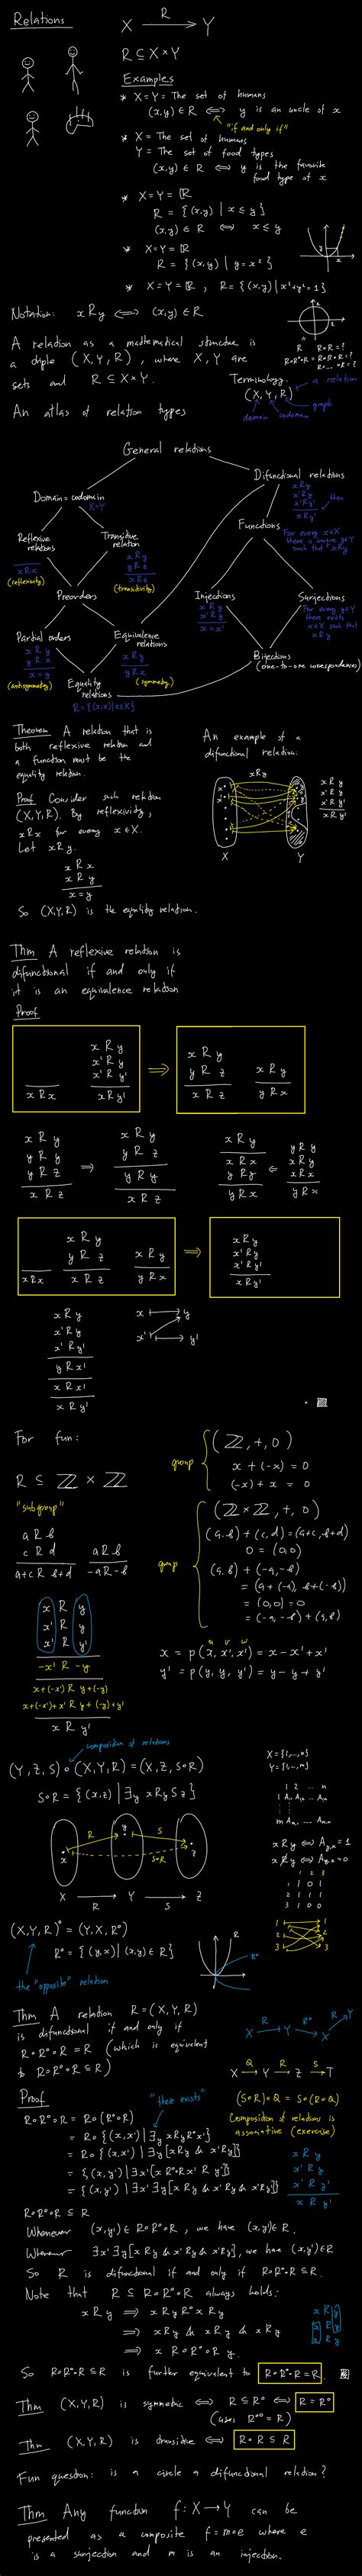 Relations
X R→ Y
R ⊆ X×Y
Examples
* X=Y= The set of humans
(x,y) ∈ R ⟺ y is an uncle of x
"if and only if"
* X = The set of humans
Y = The set of food types
(x,y) ∈ R ⟺ y is the favorite
food type of x
* X=Y=ℝ
R = {(x,y) | x ≤ y}
(x,y) ∈ R ⟺ x ≤ y
* X=Y=ℝ
R = {(x,y) | y = x²}
* X=Y=ℝ, R = {(x,y) | x²+y²=1}
Notation: xRy ⟺ (x,y) ∈ R
A relation as a mathematical structure is
a triple (X,Y,R), where X,Y are
sets and R ⊆ X×Y.
R R∘R=?
R∘R∘R = R∘R∘R=?
R∘...∘R=?
Terminology: a relation
(X,Y,R)
domain codomain graph
An atlas of relation types
General relations
Domain = codomain
X=Y
Difunctional relations
x R y
x' R y
x' R y'
x R y'
then
Functions
For every x∈X
there is unique y∈Y
such that xRy
Reflexive
relations
x R x
(reflexivity)
Transitive
relation
x R y
y R z
x R z
(transitivity)
Preorders
Injections
x R y
x' R y
x = x'
Surjections
For every y∈Y
there exists
x∈X such that
xRy
Partial orders
x R y
y R x
x = y
(antisymmetry)
Equivalence
relations
x R y
y R x
(symmetry)
Bijections
(one-to-one correspondence)
Equality
relations
R = {(x,x) | x∈X}
Theorem A relation that is
both reflexive relation and
a function must be the
equality relation.
Proof Consider such relation
(X,Y,R). By reflexivity,
xRx for every x∈X.
Let xRy.
x R x
x R y
x = y
So (X,Y,R) is the equality relation.
An example of a
difunctional relation:
xRy
X Y
x R y
x' R y
x' R y'
x R y'
Thm A reflexive relation is
difunctional if and only if
it is an equivalence relation
Proof
x R x
x R y
x' R y
x' R y'
x R y'
⟹
x R y
y R z
x R z
x R y
y R x
x R y
y R y
y R z
x R z
⟹
x R y
y R z
y R y
x R z
x R y
x R x
y R y
y R x
⇐
y R y
x R y
x R x
y R x
x R x
x R y
y R z
x R z
x R y
y R x
⟹
x R y
x' R y
x' R y'
x R y'
x R y
x' R y
x' R y'
y R x'
x R x'
x R y'
x y
x' y'
For fun:
R ⊆ ℤ × ℤ
"subgroup"
a R b
c R d
a+c R b+d
a R b
-a R -b
group
(ℤ, +, 0)
x + (-x) = 0
(-x) + x = 0
group
(ℤ×ℤ, +, 0)
(a,b) + (c,d) = (a+c, b+d)
0 = (0,0)
(a,b) + (-a,-b)
= (a+(-a), b+(-b))
= (0,0) = 0
= (-a,-b) + (a,b)
x R y
x' R y
x' R y'
-x' R -y
x+(-x') R y+(-y)
x+(-x')+x' R y+(-y)+y'
x R y'
u v w
x = p(x, x', x') = x - x' + x'
y' = p(y, y, y') = y - y + y'
composition of relations
(Y,Z,S) ∘ (X,Y,R) = (X,Z,S∘R)
S∘R = {(x,z) | ∃y xRySz}
x y z
R S
S∘R
X R→ Y S→ Z
X={1,...,n}
Y={1,...,m}
1 2 ... n
xRy ⟺ A y,x = 1
1 2 3
1 1 0 1
2 1 1 0
3 1 1 0
1 1
2 2
3 3
(X,Y,R)° = (Y,X,R°)
R° = {(y,x) | (x,y) ∈ R}
the "opposite" relation
R
R°
Thm A relation R=(X,Y,R)
is difunctional if and only if
R∘R°∘R = R (which is equivalent
to R∘R°∘R ⊆ R)
X R→ Y R°→ X R→ Y
X Q→ Y R→ Z S→ T
(S∘R)∘Q = S∘(R∘Q)
Composition of relations is
associative (exercise)
Proof
"there exists"
R∘R°∘R = R∘(R°∘R)
= R∘{(x,x') | ∃y xRyR°x'}
= R∘{(x,x') | ∃y[xRy & x'Ry]}
= {(x,y') | ∃x'[x R°∘R x' R y']}
= {(x,y') | ∃x'∃y[xRy & x'Ry & x'Ry']}
x R y
x' R y
x' R y'
x R y'
R∘R°∘R ⊆ R
Whenever (x,y') ∈ R∘R°∘R, we have (x,y') ∈ R.
Whenever ∃x'∃y[xRy & x'Ry & x'Ry'], we have (x,y') ∈ R
So R is difunctional if and only if R∘R°∘R ⊆ R.
Note that R ⊆ R∘R°∘R always holds:
xRy ⟹ xRyR°xRy
⟹ xRy & xRy & xRy
⟹ x R∘R°∘R y.
x R y
x R y
x R y
So R∘R°∘R ⊆ R is further equivalent to R∘R°∘R=R.
Thm (X,Y,R) is symmetric ⟺ R ⊆ R° ⟺ R = R°
(uses R°° = R)
Thm (X,Y,R) is transitive ⟺ R∘R ⊆ R
Fun question: is a circle a difunctional relation?
Thm Any function f: X → Y can be
presented as a composite f=m∘e where e
is a surjection and m is an injection.